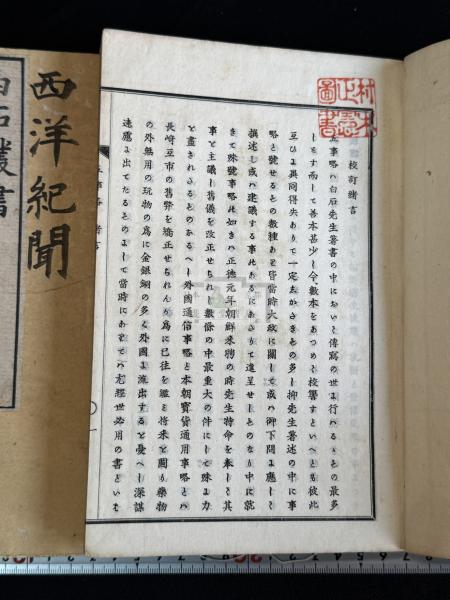 校訂緒言
五事略ハ白石先生著書の中において傳寫の世よ行ハるゝもの最多
しとす而して善本甚少し今數本をあつめて校讐すといへとも彼此
互ひよ異同得失ありて一定志かたきもの多し抑先生著述の中に事
略と號せるもの數種ありて皆當時大政に關して或ハ御下問よ應し
撰述し或ハ建議する事よあたりて進呈せしものなり中に就
きて殊號事略
正德元年朝鮮來聘の時先生特命を奉して其
事を主議し舊儀を改正せられし數條の中最重大の件にして殊よ力
と盡されしものなるへし外國通信事略と本朝寶貨通用事略とハ
長崎互市の舊弊を矯正せられんか爲に已往を鑑と將來と圖り藥物
の外無用の玩物の爲に金銀銅の多く外國よ流出すると憂へし深謀
遠慮よ出てたるものよして當時にありてハ尤經世必用の書といふ
西洋紀聞
白石叢書
村上正慧圖書